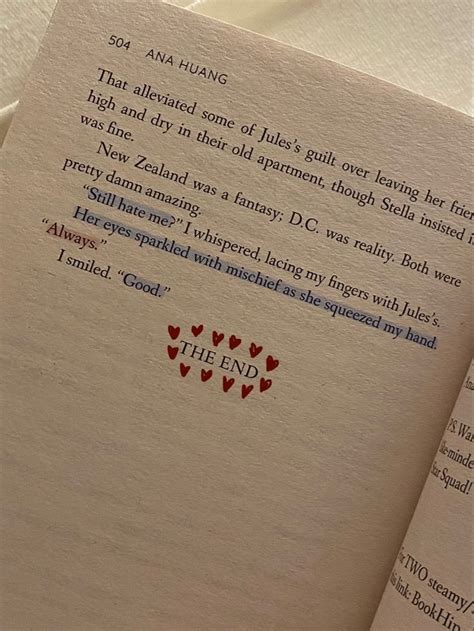 504 ANA HUANG
That alleviated some of Jules's guilt over leaving her frie
high and dry in their old apartment, though Stella insisted i
was fine.
New Zealand was a fantasy; D.C. was reality. Both were
pretty damn amazing.
"Still hate me?" I whispered, lacing my fingers with Jules's.
Her eyes sparkled with mischief as she squeezed my hand.
"Always."
I smiled. "Good."
THE END
PS. Wa
like-minde
Squad!
TWO steamy/
link: BookHip